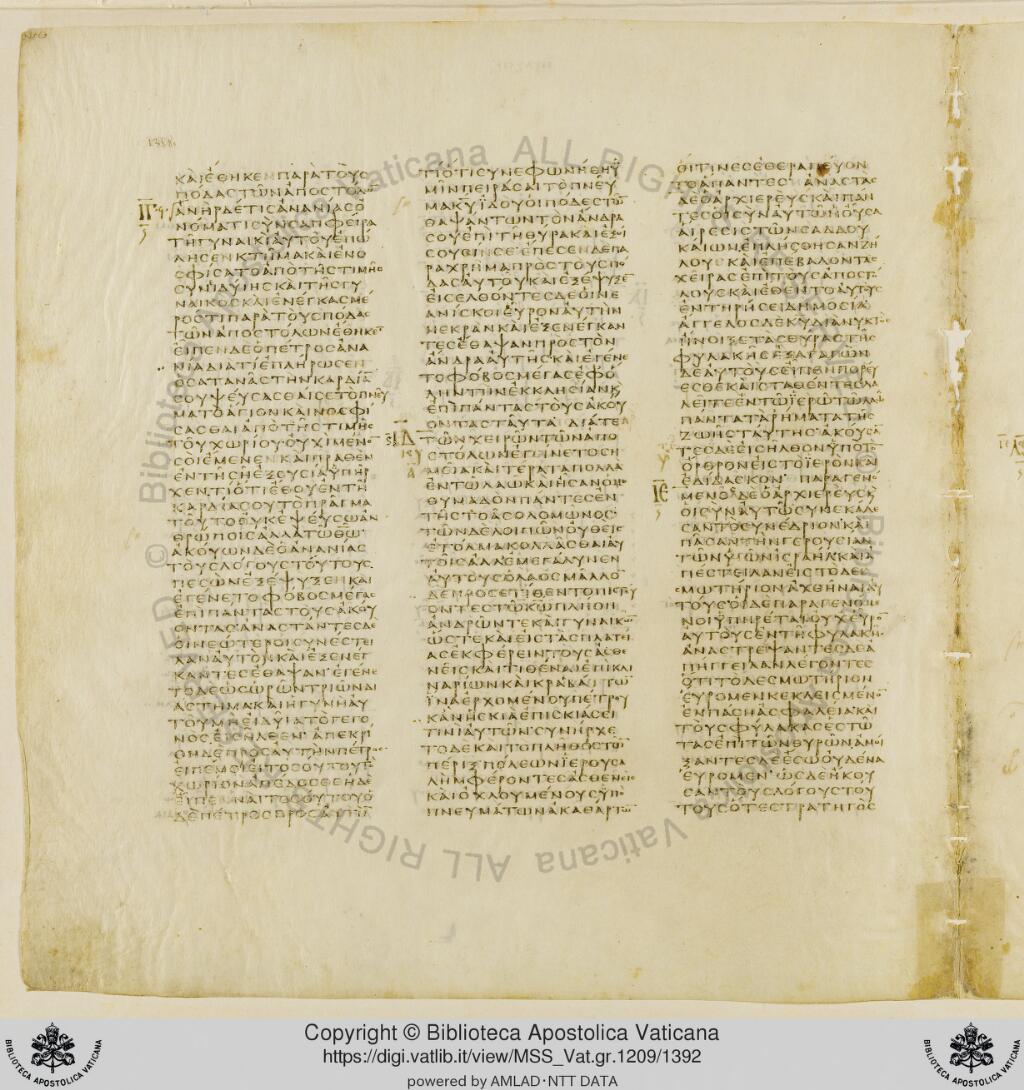 1388
ΚΑΙΕΘΗΚΕΝΠΑΡΑΤΟΥΣ
ΠΟΔΑΣΤΩΝΑΠΟΣΤΟΛΩ
ΑΝΗΡΔΕΤΙΣΑΝΑΝΙΑΣΟ
ΝΟΜΑΤΙΣΥΝΣΑΠΦΕΙΡΑ
ΤΗΓΥΝΑΙΚΙΑΥΤΟΥΕΠΩ
ΛΗΣΕΝΚΤΗΜΑΚΑΙΕΝΟ
ΣΦΙΣΑΤΟΑΠΟΤΗΣΤΙΜΗΣ
ΣΥΝΙΔΥΙΗΣΚΑΙΤΗΣΓΥ
ΝΑΙΚΟΣΚΑΙΕΝΕΓΚΑΣΜΕ
ΡΟΣΤΙΠΑΡΑΤΟΥΣΠΟΔΑΣ
ΤΩΝΑΠΟΣΤΟΛΩΝΕΘΗΚΕ
ΕΙΠΕΝΔΕΟΠΕΤΡΟΣΑΝΑ
ΝΙΑΔΙΑΤΙΕΠΛΗΡΩΣΕΝ
ΟΣΑΤΑΝΑΣΤΗΝΚΑΡΔΙΑ
ΣΟΥΨΕΥΣΑΣΘΑΙΣΕΤΟΠΝΕΥ
ΜΑΤΟΑΓΙΟΝΚΑΙΝΟΣΦΙ
ΣΑΣΘΑΙΑΠΟΤΗΣΤΙΜΗΣ
ΤΟΥΧΩΡΙΟΥΟΥΧΙΜΕΝΟ
ΣΟΙΕΜΕΝΕΝΚΑΙΠΡΑΘΕΝ
ΕΝΤΗΣΗΕΞΟΥΣΙΑΥΠΗΡ
ΧΕΝΤΙΟΤΙΕΘΟΥΕΝΤΗ
ΚΑΡΔΙΑΣΟΥΤΟΠΡΑΓΜΑ
ΤΟΥΤΟΟΥΚΕΨΕΥΣΩΑΝ
ΘΡΩΠΟΙΣΑΛΛΑΤΩΘΩ
ΑΚΟΥΩΝΔΕΟΑΝΑΝΙΑΣ
ΤΟΥΣΛΟΓΟΥΣΤΟΥΤΟΥΣ
ΠΕΣΩΝΕΞΕΨΥΞΕΝΚΑΙ
ΕΓΕΝΕΤΟΦΟΒΟΣΜΕΓΑΣ
ΕΠΙΠΑΝΤΑΣΤΟΥΣΑΚΟΥ
ΟΝΤΑΣΑΝΑΣΤΑΝΤΕΣΔΕ
ΟΙΝΕΩΤΕΡΟΙΣΥΝΕΣΤΕΙ
ΛΑΝΑΥΤΟΝΚΑΙΕΞΕΝΕΓ
ΚΑΝΤΕΣΕΘΑΨΑΝΕΓΕΝΕ
ΤΟΔΕΩΣΩΡΩΝΤΡΙΩΝΔΙ
ΑΣΤΗΜΑΚΑΙΗΓΥΝΗΑΥ
ΤΟΥΜΗΕΙΔΥΙΑΤΟΓΕΓΟ
ΝΟΣΕΙΣΗΛΘΕΝΑΠΕΚΡΙ
ΘΗΔΕΠΡΟΣΑΥΤΗΝΠΕΤΡΟΣ
ΕΙΠΕΜΟΙΕΙΤΟΣΟΥΤΟΥΤΟ
ΧΩΡΙΟΝΑΠΕΔΟΣΘΕΗΔΕ
ΕΙΠΕΝΝΑΙΤΟΣΟΥΤΟΥΟ
ΔΕΠΕΤΡΟΣΠΡΟΣΑΥΤΗ
ΤΙΟΤΙΣΥΝΕΦΩΝΗΘΗΫ
ΜΙΝΠΕΙΡΑΣΑΙΤΟΠΝΕΥ
ΜΑΚΥΙΔΟΥΟΙΠΟΔΕΣΤΩ
ΘΑΨΑΝΤΩΝΤΟΝΑΝΔΡΑ
ΣΟΥΕΠΙΤΗΘΥΡΑΚΑΙΕΞΟΙ
ΣΟΥΣΙΝΣΕΕΠΕΣΕΝΔΕΠΑ
ΡΑΧΡΗΜΑΠΡΟΣΤΟΥΣΠΟ
ΔΑΣΑΥΤΟΥΚΑΙΕΞΕΨΥΞΕ
ΕΙΣΕΛΘΟΝΤΕΣΔΕΟΙΝΕ
ΑΝΙΣΚΟΙΕΥΡΟΝΑΥΤΗΝ
ΝΕΚΡΑΝΚΑΙΕΞΕΝΕΓΚΑΝ
ΤΕΣΕΘΑΨΑΝΠΡΟΣΤΟΝ
ΑΝΔΡΑΑΥΤΗΣΚΑΙΕΓΕΝΕ
ΤΟΦΟΒΟΣΜΕΓΑΣΕΦΟ
ΛΗΝΤΗΝΕΚΚΛΗΣΙΑΝΚ
ΕΠΙΠΑΝΤΑΣΤΟΥΣΑΚΟΥ
ΟΝΤΑΣΤΑΥΤΑΔΙΑΤΕ
ΤΩΝΧΕΙΡΩΝΤΩΝΑΠΟ
ΣΤΟΛΩΝΕΓΙΝΕΤΟΣΗ
ΜΕΙΑΚΑΙΤΕΡΑΤΑΠΟΛΛΑ
ΕΝΤΩΛΑΩΚΑΙΗΣΑΝΟΜΟ
ΘΥΜΑΔΟΝΠΑΝΤΕΣΕΝ
ΤΗΣΤΟΑΣΟΛΟΜΩΝΟΣ
ΤΩΝΔΕΛΟΙΠΩΝΟΥΘΕΙΣ
ΕΤΟΛΜΑΚΟΛΛΑΣΘΑΙΑΥ
ΤΟΙΣΑΛΛΕΜΕΓΑΛΥΝΕΝ
ΑΥΤΟΥΣΟΛΑΟΣΜΑΛΛΟ
ΔΕΠΡΟΣΕΤΙΘΕΝΤΟΠΙΣΤΕΥ
ΟΝΤΕΣΤΩΚΩΠΛΗΘΗ
ΑΝΔΡΩΝΤΕΚΑΙΓΥΝΑΙΚΩ
ΩΣΤΕΚΑΙΕΙΣΤΑΣΠΛΑΤΕΙ
ΑΣΕΚΦΕΡΕΙΝΤΟΥΣΑΣΘΕ
ΝΕΙΣΚΑΙΤΙΘΕΝΑΙΕΠΙΚΛΙ
ΝΑΡΙΩΝΚΑΙΚΡΑΒΑΤΤΩ
ΪΝΑΕΡΧΟΜΕΝΟΥΠΕΤΡΟΥ
ΚΑΝΗΣΚΙΑΕΠΙΣΚΙΑΣΕΙ
ΤΙΝΙΑΥΤΩΝΣΥΝΗΡΧΕ
ΤΟΔΕΚΑΙΤΟΠΛΗΘΟΣΤΩ
ΠΕΡΙΞΠΟΛΕΩΝΙΕΡΟΥΣΑ
ΛΗΜΦΕΡΟΝΤΕΣΑΣΘΕΝΕΙΣ
ΚΑΙΟΧΛΟΥΜΕΝΟΥΣΥΠΟ
ΠΝΕΥΜΑΤΩΝΑΚΑΘΑΡΤΩ
ΟΙΤΙΝΕΣΕΘΕΡΑΠΕΥΟΝ
ΤΟΑΠΑΝΤΕΣΑΝΑΣΤΑΣ
ΔΕΟΑΡΧΙΕΡΕΥΣΚΑΙΠΑΝ
ΤΕΣΟΙΣΥΝΑΥΤΩΗΟΥΣΑ
ΑΙΡΕΣΙΣΤΩΝΣΑΔΔΟΥ
ΚΑΙΩΝΕΠΛΗΣΘΗΣΑΝΖΗ
ΛΟΥΚΑΙΕΠΕΒΑΛΟΝΤΑΣ
ΧΕΙΡΑΣΕΠΙΤΟΥΣΑΠΟΣΤΟ
ΛΟΥΣΚΑΙΕΘΕΝΤΟΑΥΤΟΥΣ
ΕΝΤΗΡΗΣΕΙΔΗΜΟΣΙΑ
ΑΓΓΕΛΟΣΔΕΚΥΔΙΑΝΥΚΤΟΣ
ΗΝΟΙΞΕΤΑΣΘΥΡΑΣΤΗΣ
ΦΥΛΑΚΗΣΕΞΑΓΑΓΩΝ
ΔΕΑΥΤΟΥΣΕΙΠΕΝΠΟΡΕΥ
ΕΣΘΕΚΑΙΣΤΑΘΕΝΤΕΣΛΑ
ΛΕΙΤΕΕΝΤΩΪΕΡΩΤΩΛΑΩ
ΠΑΝΤΑΤΑΡΗΜΑΤΑΤΗΣ
ΖΩΗΣΤΑΥΤΗΣΑΚΟΥΣΑ
ΤΕΣΔΕΕΙΣΗΛΘΟΝΥΠΟΤΟ
ΟΡΘΡΟΝΕΙΣΤΟΪΕΡΟΝΚΑΙ
ΕΔΙΔΑΣΚΟΝΠΑΡΑΓΕΝΟ
ΜΕΝΟΣΔΕΟΑΡΧΙΕΡΕΥΣΚΑΙ
ΟΙΣΥΝΑΥΤΩΣΥΝΕΚΑΛΕ
ΣΑΝΤΟΣΥΝΕΔΡΙΟΝΚΑΙ
ΠΑΣΑΝΤΗΝΓΕΡΟΥΣΙΑΝ
ΤΩΝΥΙΩΝΙΣΡΑΗΛΚΑΙΑ
ΠΕΣΤΕΙΛΑΝΕΙΣΤΟΔΕΣ
ΜΩΤΗΡΙΟΝΑΧΘΗΝΑΙΑΥ
ΤΟΥΣΟΙΔΕΠΑΡΑΓΕΝΟΜΕ
ΝΟΙΥΠΗΡΕΤΑΙΟΥΧΕΥΡΟ
ΑΥΤΟΥΣΕΝΤΗΦΥΛΑΚΗ
ΑΝΑΣΤΡΕΨΑΝΤΕΣΔΕΑ
ΠΗΓΓΕΙΛΑΝΛΕΓΟΝΤΕΣ
ΟΤΙΤΟΔΕΣΜΩΤΗΡΙΟΝ
ΕΥΡΟΜΕΝΚΕΚΛΕΙΣΜΕΝΟ
ΕΝΠΑΣΗΑΣΦΑΛΕΙΑΚΑΙ
ΤΟΥΣΦΥΛΑΚΑΣΕΣΤΩ
ΤΑΣΕΠΙΤΩΝΘΥΡΩΝΑΝΟΙ
ΞΑΝΤΕΣΔΕΕΣΩΟΥΔΕΝΑ
ΕΥΡΟΜΕΝΩΣΔΕΗΚΟΥ
ΣΑΝΤΟΥΣΛΟΓΟΥΣΤΟΥ
ΤΟΥΣΟΤΕΣΤΡΑΤΗΓΟΣ
ΙΔ
ΙΕ
Copyright © Biblioteca Apostolica Vaticana
https://digi.vatlib.it/view/MSS_Vat.gr.1209/1392
powered by AMLAD·NTT DATA
BIBLIOTECA APOSTOLICA VATICANA
BIBLIOTECA APOSTOLICA VATICANA